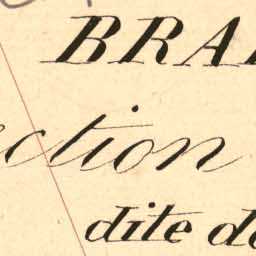 BRA
ction
dite d